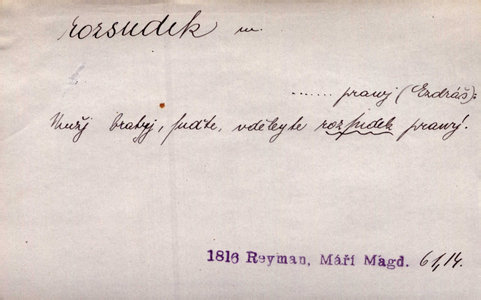 rozsudek m.
...... prawý (Ezdráš):
Muži bratřj, suďte, vděleyte rozsudek prawý!
1816 Reyman, Máří Magd. 61,14.